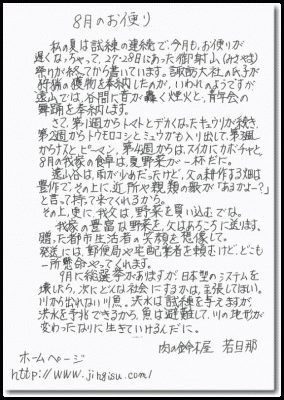 8月のお便り
私の夏は試練の連続で、今月も、お便りが
遅くなっちゃって、27・28日にあった御射山(みさやま)
祭りが終ってから書いています。諏訪大社の氏子が
狩猟の獲物を奉納したのが、いわれのようですが
遠山では、谷間に音が轟く煙火と、青年会の
舞踊を奉納します。
さて、第1週からトマトとデカくなったキュウリが続き、
第2週からトウモロコシとミョウガも入り出して、第3週
からナスとピーマン、第4週からは、スイカにカボチャと、
8月の我家の食卓は夏野菜が一杯だに。
遠山谷は、雨が少めだったけど、父の耕作する畑は
豊作で、その上に、近所や親類の衆が「あるかよー?」
と言って持って来てくれるから。
その上、更に、我父は、野菜を買い込むでな。
我家の豊富な野菜を、父はあちこちに送ります。
贈った都市生活者の笑顔を想像して。
発送には、郵便局や宅配業者を頼むけど、どこも
一所懸命やってくれます。
9月に総選挙がありますが、日本型のシステムを
壊したら、次にどんな社会にするかは、主張してほしい。
川から出れない川魚。洪水は試練を与えますが、
洪水を予兆できるから、魚は避難して、川の地形が
変わったなりに生きていけるんだに。
肉の鈴木屋 若旦那
ホームページ
http://www.jingisu.com/